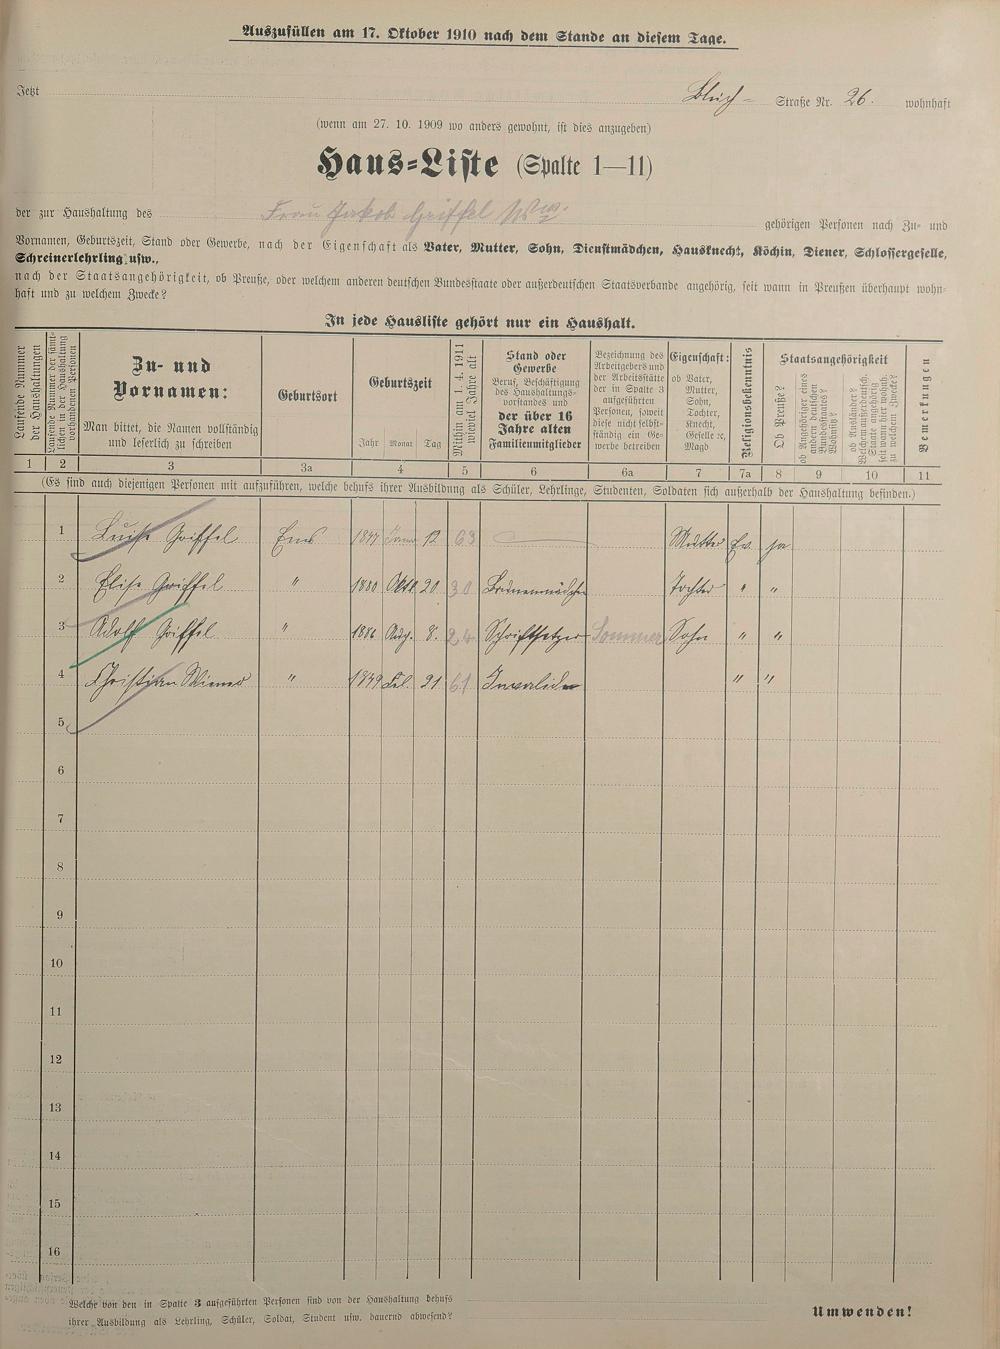 Auszufüllen am 17. Oktober 1910 nach dem Stande an diesem Tage.
Jetzt Blüch- Straße Nr. 26. wohnhaft
(wenn am 27. 10. 1909 wo anders gewohnt, ist dies anzugeben)
Haus-Liste (Spalte 1—11)
der zur Haushaltung des Frau Jakob Griffel Wwe. gehörigen Personen nach Zu- und
Vornamen, Geburtszeit, Stand oder Gewerbe, nach der Eigenschaft als Vater, Mutter, Sohn, Dienstmädchen, Hausknecht, Köchin, Diener, Schlossergeselle,
Schreinerlehrling usw.,
nach der Staatsangehörigkeit, ob Preuße, oder welchem anderen deutschen Bundesstaate oder außerdeutschen Staatsverbande angehörig, seit wann in Preußen überhaupt wohn-
haft und zu welchem Zwecke?
In jede Hausliste gehört nur ein Haushalt.
Laufende Nummer
der Haushaltungen
Laufende Nummer der sämt-
lichen in der Haushaltung
vorhandenen Personen
Zu- und
Vornamen:
Man bittet, die Namen vollständig
und leserlich zu schreiben
Geburtsort
Geburtszeit
Jahr Monat Tag
Mithin am 1. 4. 1911
wieviel Jahre alt
Stand oder
Gewerbe
Beruf, Beschäftigung
des Haushaltungs-
vorstandes und
der über 16
Jahre alten
Familienmitglieder
Bezeichnung des
Arbeitgebers und
der Arbeitsstätte
der in Spalte 3
aufgeführten
Personen, soweit
diese nicht selbst-
ständig ein Ge-
werbe betreiben
Eigenschaft:
ob Vater,
Mutter,
Sohn,
Tochter,
Knecht,
Geselle ꝛc,
Magd
Religionsbekenntnis
Staatsangehörigkeit
Ob Preuße?
ob Angehöriger eines
andern deutschen
Bundesstaates?
Wohnsitz?
ob Ausländer?
Welchem außerdeutsch.
Staate angehörig
seit wann hier wohnh.
zu welchem Zwecke?
Bemerkungen
1 2 3 3a 4 5 6 6a 7 7a 8 9 10 11
(Es sind auch diejenigen Personen mit aufzuführen, welche behufs ihrer Ausbildung als Schüler, Lehrlinge, Studenten, Soldaten sich außerhalb der Haushaltung befinden.)
1 Luise Griffel Ems 1847 Janr 12 63 Mutter Ev. ja
2 Elise Griffel " 1880 Oktb 20 30 Brunnenmädchen Tochter " "
3 Adolf Griffel " 1886 Aug. 8. 24 Schriftsetzer Sommer Sohn " "
4 Christian " 1849 Feb. 21 61 Invalide " "
5
6
7
8
9
10
11
12
13
14
15
16
Welche von den in Spalte 3 aufgeführten Personen sind von der Haushaltung behufs
ihrer Ausbildung als Lehrling, Schüler, Soldat, Student usw. dauernd abwesend?
Umwenden!